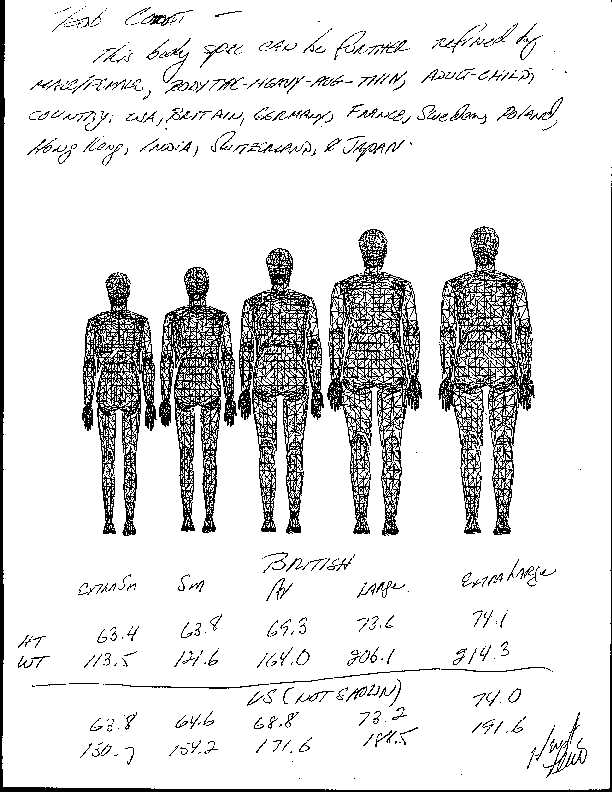 This body spec can be further refined by
MALE/FEMALE, BODYTYPE-HEAVY-AVG-THIN, ADULT-CHILD,
COUNTRY: USA, BRITAIN, GERMANY, FRANCE, Sweden, Poland,
Hong Kong, INDIA, SWITZERLAND, & JAPAN.
BRITISH
EXTRA SM SM AV LARGE EXTRA LARGE
HT 63.4 63.8 69.3 73.6 74.1
WT 113.5 121.6 164.0 206.1 214.3
US (NOT SHOWN)
63.8 64.6 68.8 73.2 74.0
150.7 154.2 171.6 188.5 191.6